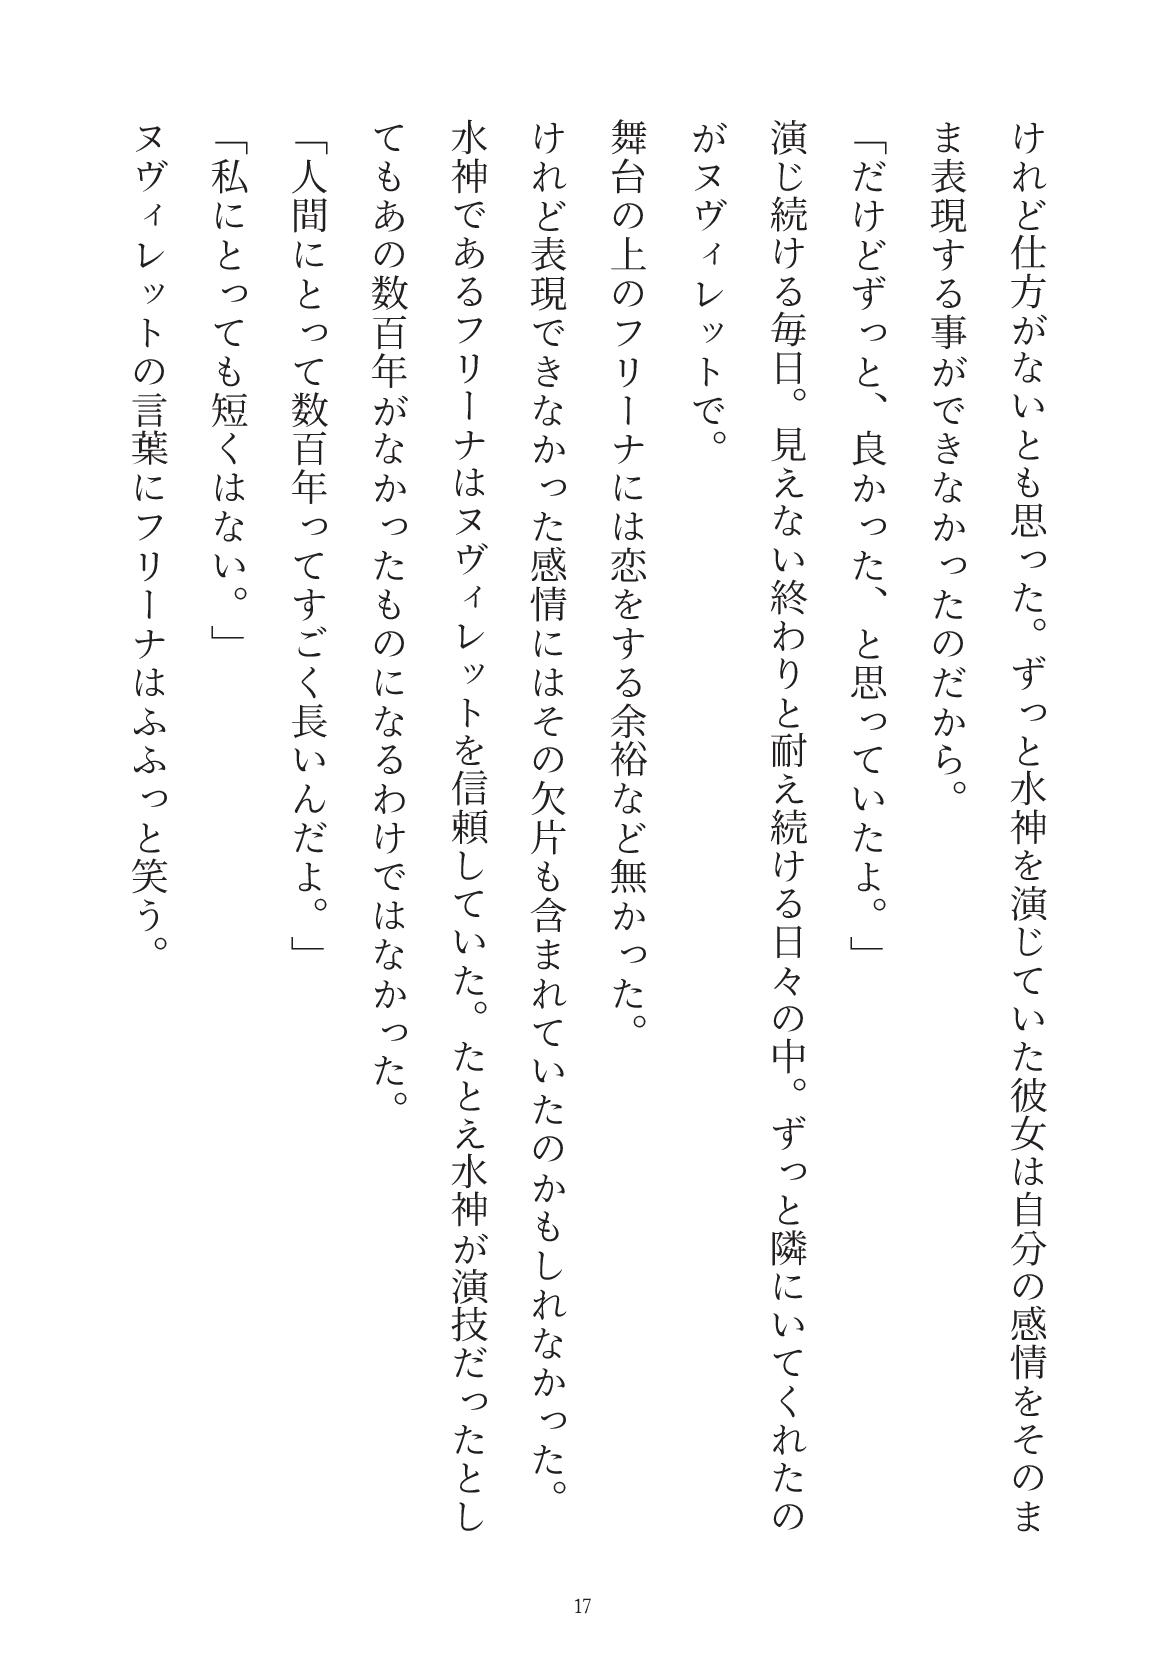 けれど仕方がないとも思った。ずっと水神を演じていた彼女は自分の感情をそのま
ま表現する事ができなかったのだから。
「だけどずっと、良かった、と思っていたよ。」
演じ続ける毎日。見えない終わりと耐え続ける日々の中。ずっと隣にいてくれたの
がヌヴィレットで。
舞台の上のフリーナには恋をする余裕など無かった。
けれど表現できなかった感情にはその欠片も含まれていたのかもしれなかった。
水神であるフリーナはヌヴィレットを信頼していた。たとえ水神が演技だったとし
てもあの数百年がなかったものになるわけではなかった。
「人間にとって数百年ってすごく長いんだよ。」
「私にとっても短くはない。」
ヌヴィレットの言葉にフリーナはふふっと笑う。
17